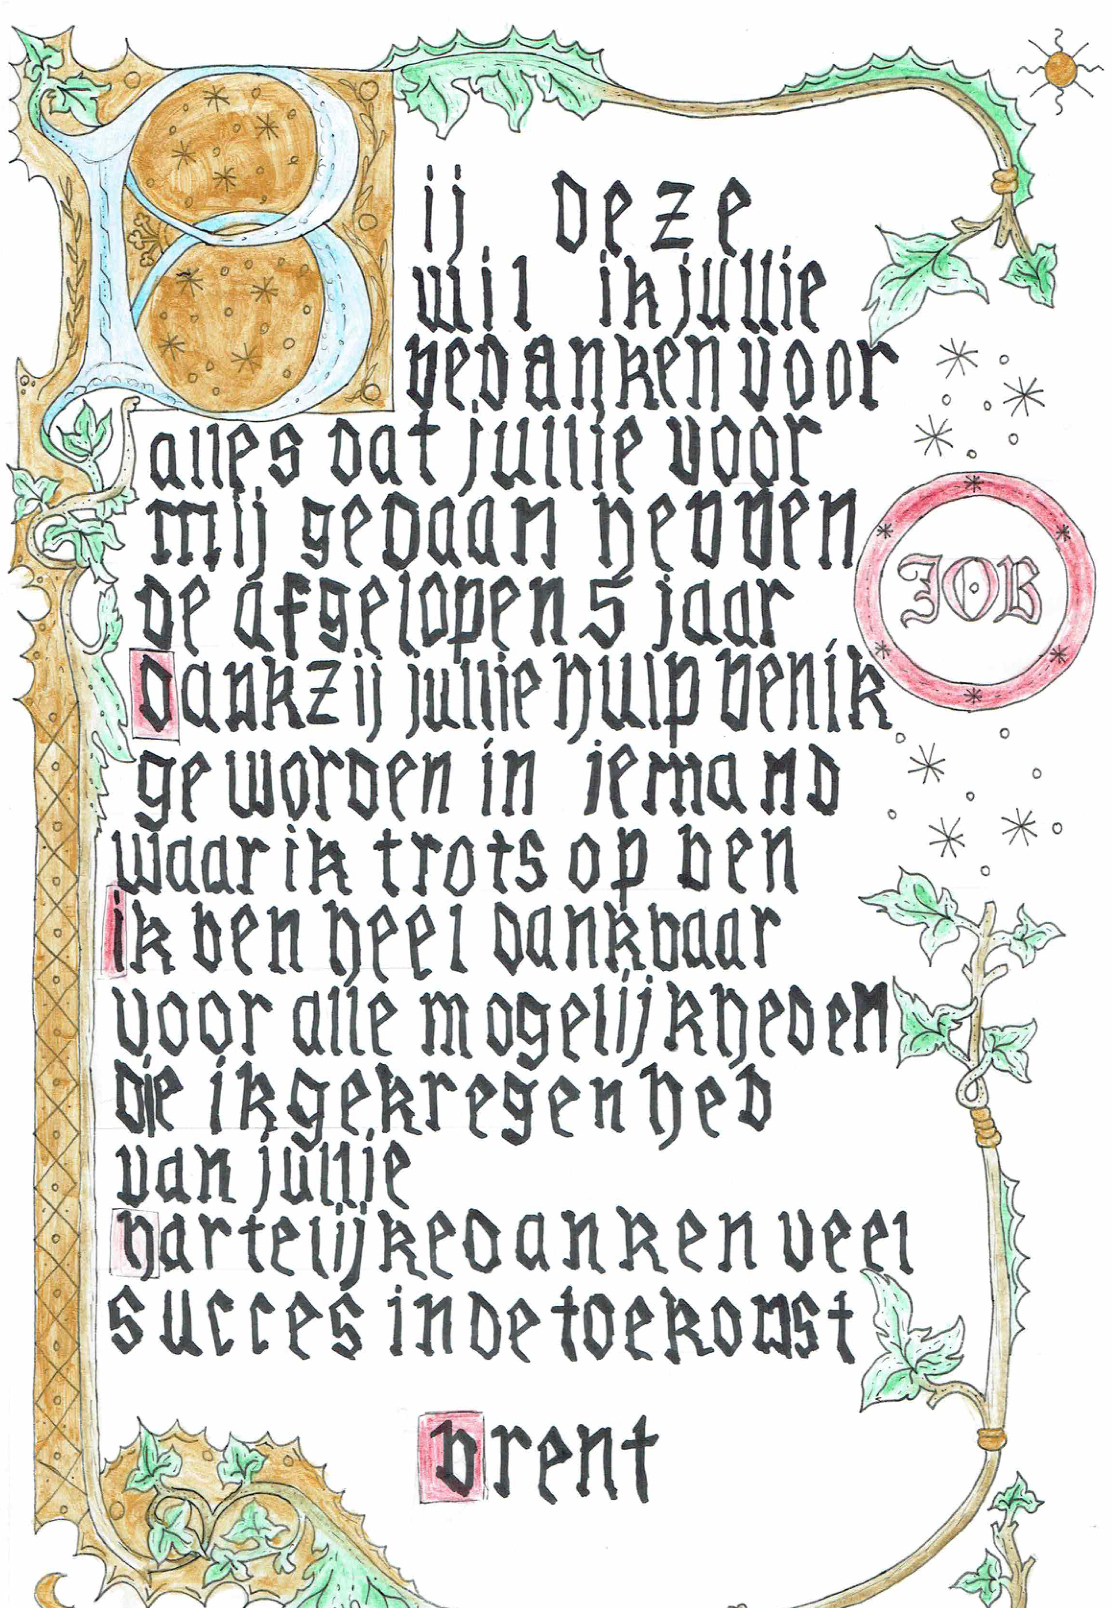 Bij deze
wil ik jullie
bedanken voor
alles dat jullie voor
mij gedaan hebben
de afgelopen 5 jaar
Dankzij jullie hulp ben ik
geworden in iemand
waar ik trots op ben
ik ben heel dankbaar
voor alle mogelijkheden
die ik gekregen heb
van jullie
hartelijke danken veel
succes in de toekomst
brent
JOB